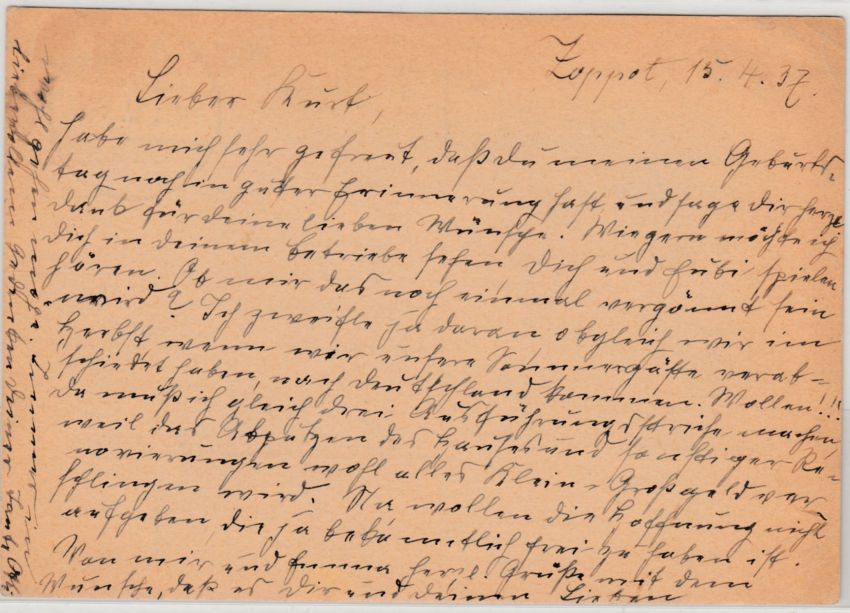 Zoppot, 15. 4. 37.
Lieber Kurt,
habe mich sehr gefreut, daß Du meinen Geburts-
tag noch in guter Erinnerung hast und sage Dir herzl.
Dank für deine lieben Wünsche. Wie gern möchte ich
Dich in deinem Betriebe sehen, Dich und Hubi spielen
hören. Ob mir das noch einmal vergönnt sein
wird? Ich zweifle ja daran obgleich wir im
Herbst wenn wir unsere Sommergäste verab-
schiedet haben, nach Deutschland kommen. Wollen!!!
Da muß ich gleich drei Ausführungsstriche machen,
weil das Abputzen des Hauses und sonstiger Re-
novierungen wohl alles Klein- Großgeld ver-
schlingen wird. Na wollen die Hoffnung nicht
aufgeben, die ja bekanntlich frei zu haben ist.
Von mir und Emma herzl. Grüße mit dem
Wunsche, daß es Dir und deinen Lieben
wohl gehen möge. Immer in
Liebe Deiner gedenkend Deine Tante